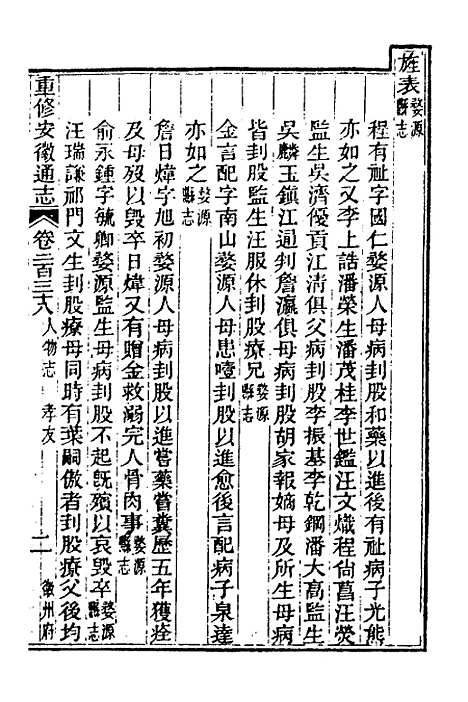 旌表婺源縣志
程有祉字國仁婺源人母病刲股和藥以進後有祉病子光熊
亦如之又李上誥潘榮生潘茂桂李世鑑汪文熾程尙菖汪熒
監生吳濟優貢江淸俱父病刲股李振基李乾鋼潘大高監生
吳麟玉鎭江通判詹瀛俱母病刲股胡家報嫡母及所生母病
皆刲股監生汪服休刲股療兄婺源縣志
金言配字南山婺源人母患噎刲股以進愈後言配病子泉達
亦如之婺源縣志
詹日煒字旭初婺源人母病刲股以進嘗藥嘗糞歷五年獲痊
及母歿以毀卒日煒又有贈金救溺完人骨肉事婺源縣志
俞永鍾字毓卿婺源監生母病刲股不起旣殯以哀毀卒婺源縣志
汪瑞謙祁門文生刲股療母同時有葉嗣倣者刲股療父後均
重修安徽通志 卷二百三六 人物志 孝友 二 徽州府